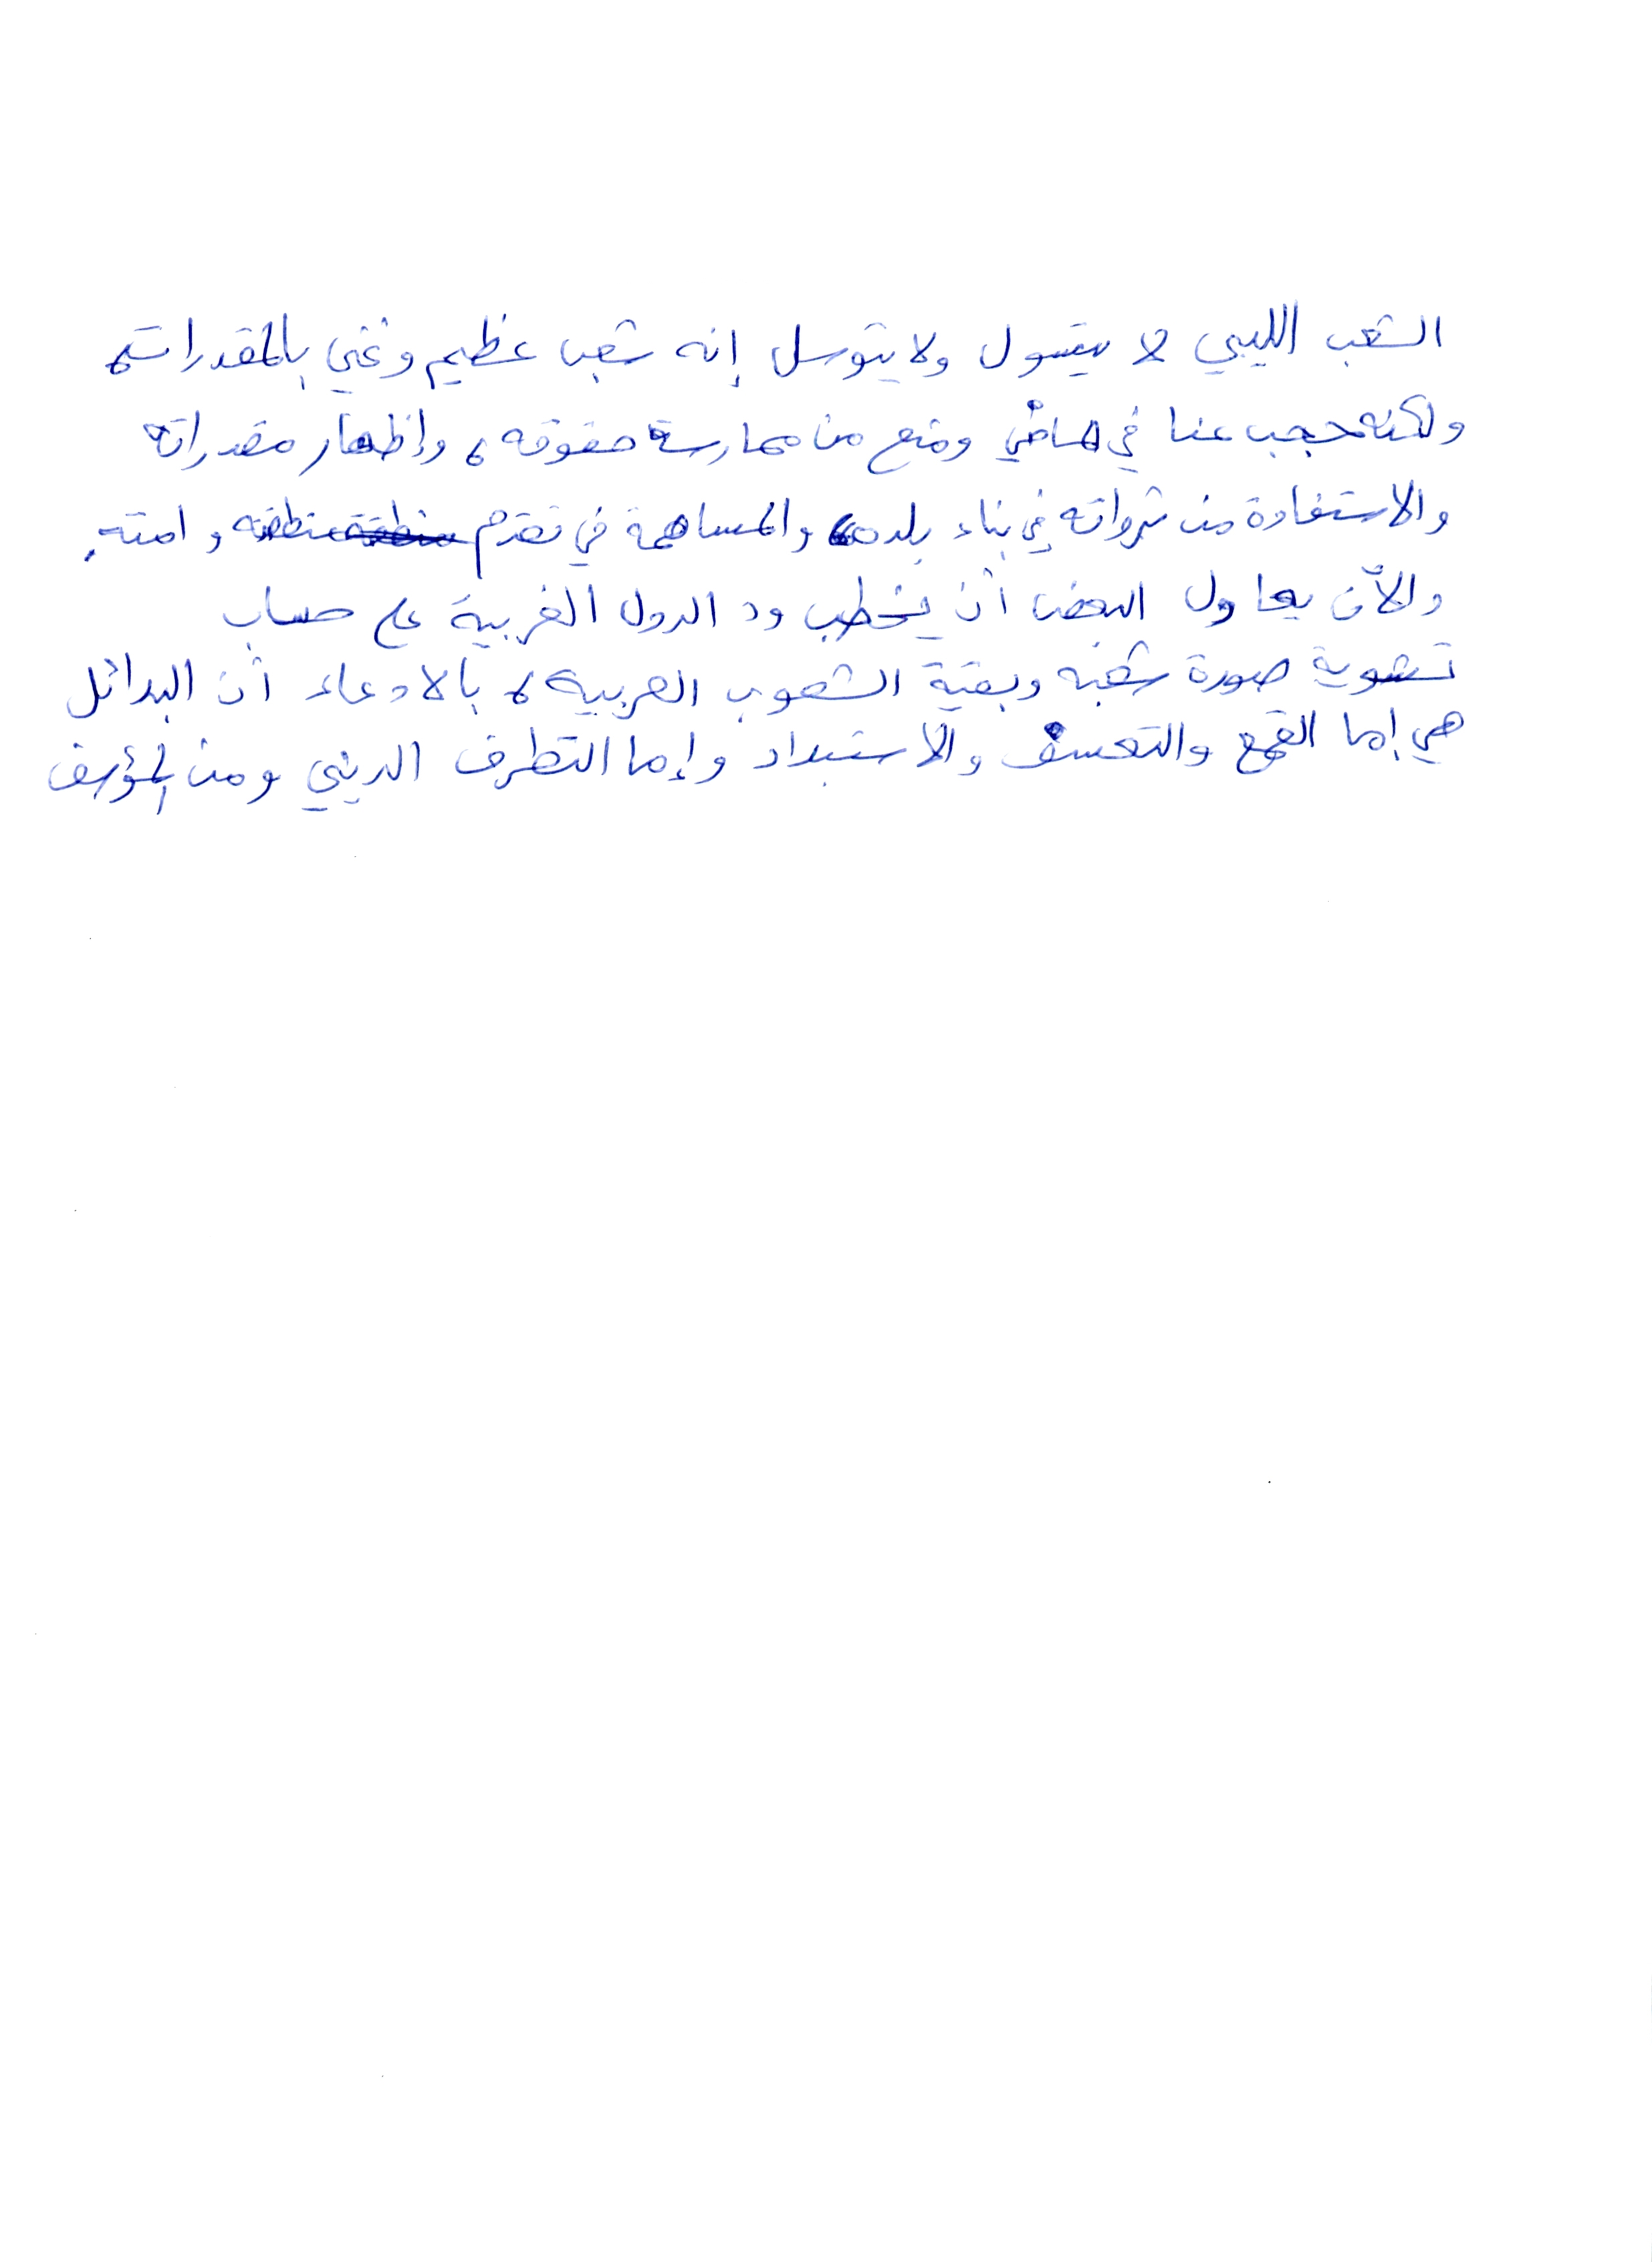 الشعب الليبي لا يتسول ولا يتوسل إنه شعب عظيم وغني بالمقدرات،
ولكنه حجب عنا في الماضي ومنع من ممارسة حقوقه، وإظهار مقدراته
والاستفادة من ثرواته في بناء بلده، والمساهمة في تقدم منطقته وامته.
والآن يحاول البعض أن يخطب ود الدول الغربية على حساب
تشويه صورة شعبه وبقية الشعوب العربية، بالادعاء أن البدائل
هي إما القمع والتعسف والاستبداد وإما التطرف الديني ومن المؤسف